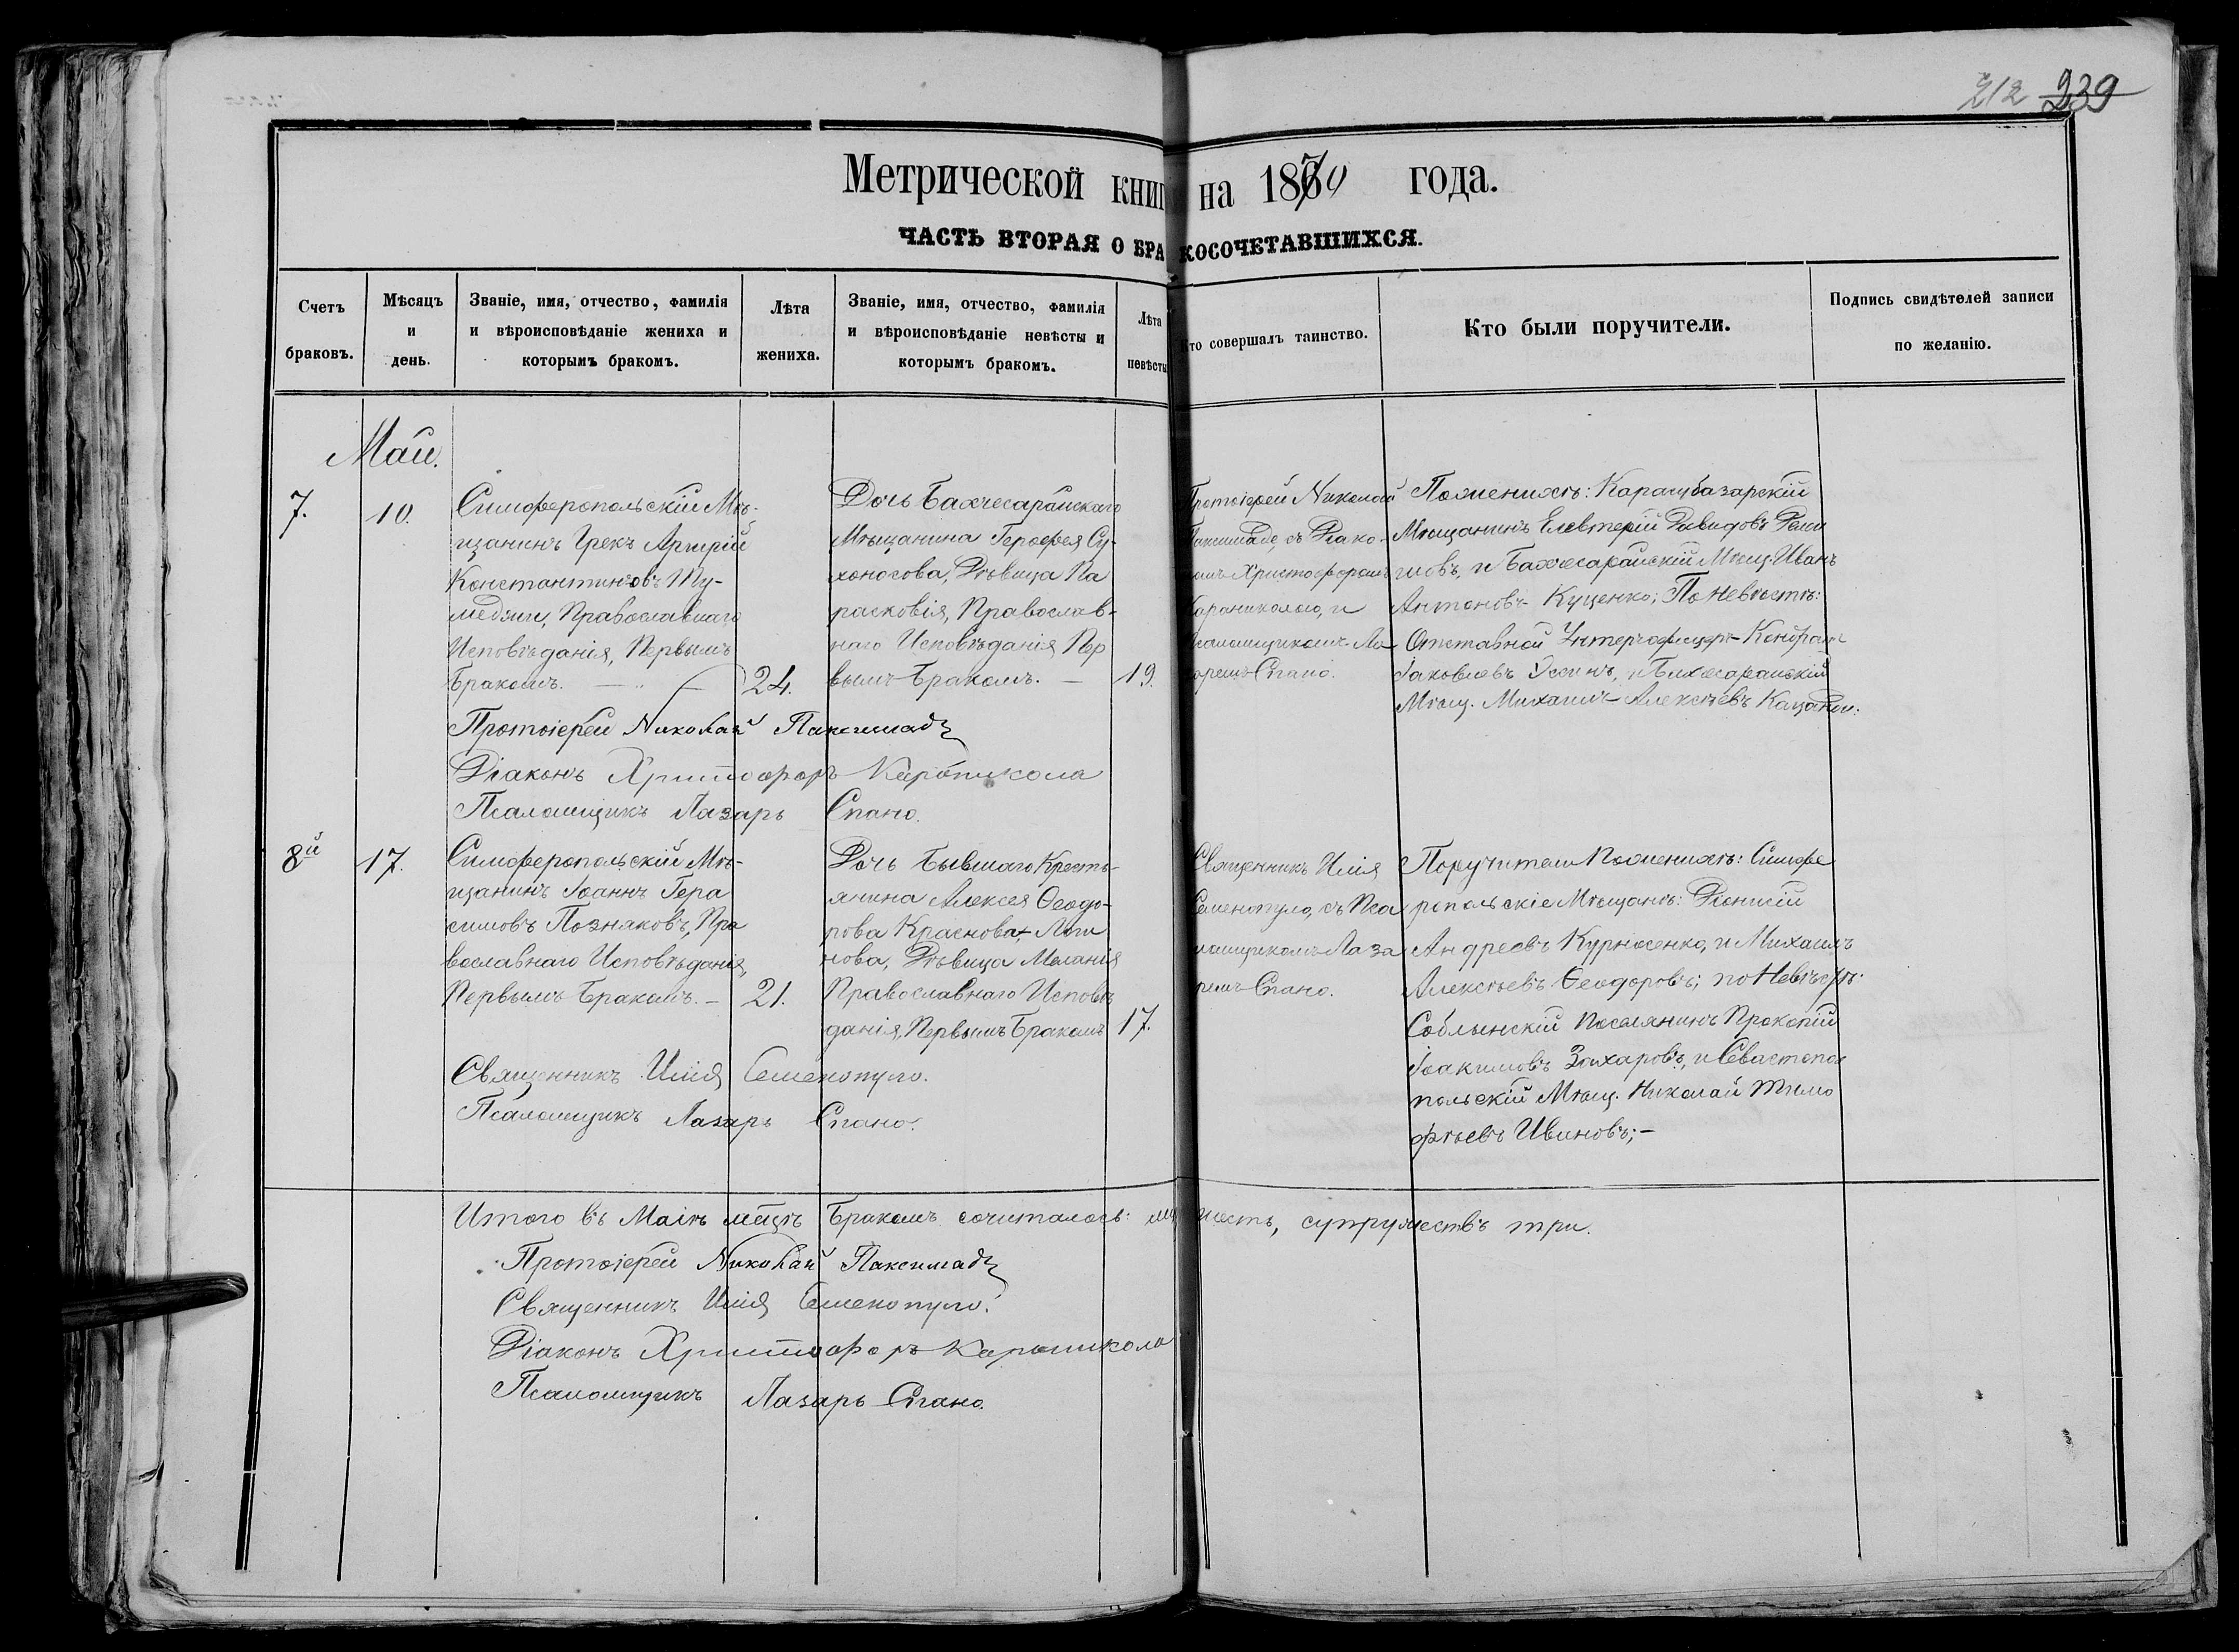 212 239
Метрической книг на 1870 года.
ЧАСТЬ ВТОРАЯ О БРАКОСОЧЕТАВШИХСЯ.
Счетъ
браковъ.
Мѣсяцъ
и
день.
Званіе, имя, отчество, фамилія
и вѣроисповѣданіе жениха и
которымъ бракомъ.
Лѣта
жениха.
Званіе, имя, отчество, фамилія
и вѣроисповѣданіе невѣсты и
которымъ бракомъ.
Лѣта
невѣсты
Кто совершалъ таинство.
Кто были поручители.
Подпись свидѣтелей записи
по желанію.
Маи.
7.
10.
Симферопольскій Мѣ-
щанинъ Грекъ Аргирій
Константиновъ
Православнаго
Исповѣданія, Первымъ
Бракомъ. —
24.
Дочь Бахчесарайскаго
Мѣщанина Герофея Су-
хоносова, Дѣвица Па
расковія, Православ-
наго Исповѣданія Пер
вымъ Бракомъ. —
19.
Протоіерей Николай
Паксимаде, съ Діако-
номъ Христофоромъ
Караниколою, и
Псаломщикомъ Ла-
заремъ Спано.
По женихѣ: Карасубазарскій
Мѣщанинъ Елевтерій Давидовъ
и Бахчесарайскій Мѣщ. Иванъ
Антоновъ Куценко; По Невѣстѣ:
Отставной Унтерофицеръ Кондратъ
Іаковлевъ и Бахчесарайскій
Мѣщ. Михаилъ Алексѣевъ
Протоіерей Николай Паксимадъ
Діаконъ Христофоръ Караникола
Псаломщикъ Лазарь Спано.
8й
17.
Симферопольскій Мѣ-
щанинъ Іоаннъ Гера
симовъ Позняковъ, Пра
вославнаго Исповѣданія,
Первымъ Бракомъ. —
21.
Дочь Бывшаго Кресть-
янина Алексея Ѳеодо-
рова Краснова, Логи
нова, Дѣвица Меланія
Православнаго Исповѣ
данія, Первымъ Бракомъ
17.
Священникъ Илія
Семенопуло, съ Пса
ломщикомъ Лаза
ремъ Спано.
Поручители по женихѣ: Симфе
ропольскіе Мѣщанѣ: Діонисій
Андреевъ Курносенко, и Михаилъ
Алексѣевъ Ѳеодоровъ; по Невѣстѣ:
Саблынскій Поселянинъ Прокопій
Іоакимовъ Захаровъ, и Севастопо
польскій Мѣщ. Николай Тимо
фѣевъ Ивановъ; —
Священникъ Илія Семенопуло.
Псаломщикъ Лазарь Спано.
Итого въ Маіѣ мцѣ Бракомъ сочиталось: лицъ шесть, супружествъ три.
Протоіерей Николай Паксимадъ
Священникъ Илія Семенопуло.
Діаконъ Христофоръ Караникола
Псаломщикъ Лазарь Спано.